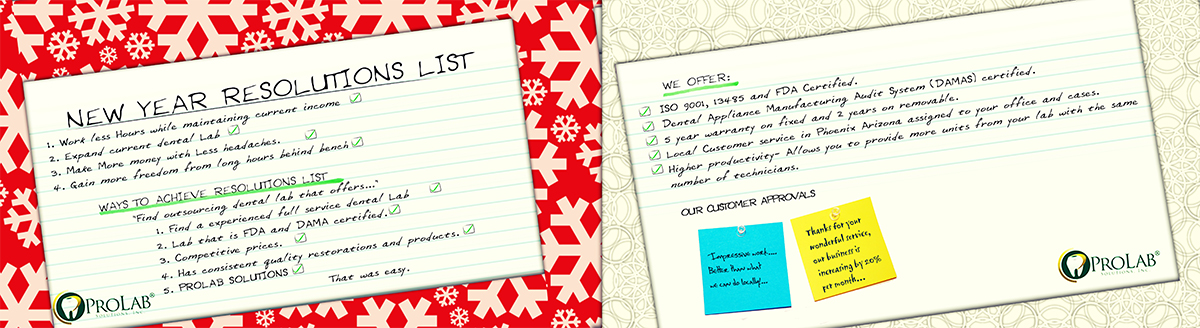 NEW YEAR RESOLUTIONS LIST
1. Work less Hours while maintaining current income
2. Expand current dental Lab
3. Make More money with Less headaches.
4. Gain more freedom from long hours behind bench
WAYS TO ACHIEVE RESOLUTIONS LIST
"Find outsourcing dental lab that offers..."
1. Find a experienced full service dental Lab
2. Lab that is FDA and DAMA certified.
3. Competitive prices.
4. Has consistent quality restorations and products.
5. PROLAB SOLUTIONS
That was easy.
PROLAB®
SOLUTIONS, INC
WE OFFER:
ISO 9001, 13485 and FDA Certified.
Dental Appliance Manufacturing Audit System (DAMAS) certified.
5 year warranty on fixed and 2 years on removable.
Local Customer service in Phoenix Arizona assigned to your office and cases.
Higher productivity- Allows you to provide more units from your lab with the same
number of technicians.
OUR CUSTOMER APPROVALS
"Impressive work....
Better than what
we can do locally"...
Thanks for your
wonderful service,
our business is
increasing by 20%
per month....
PROLAB®
SOLUTIONS, INC